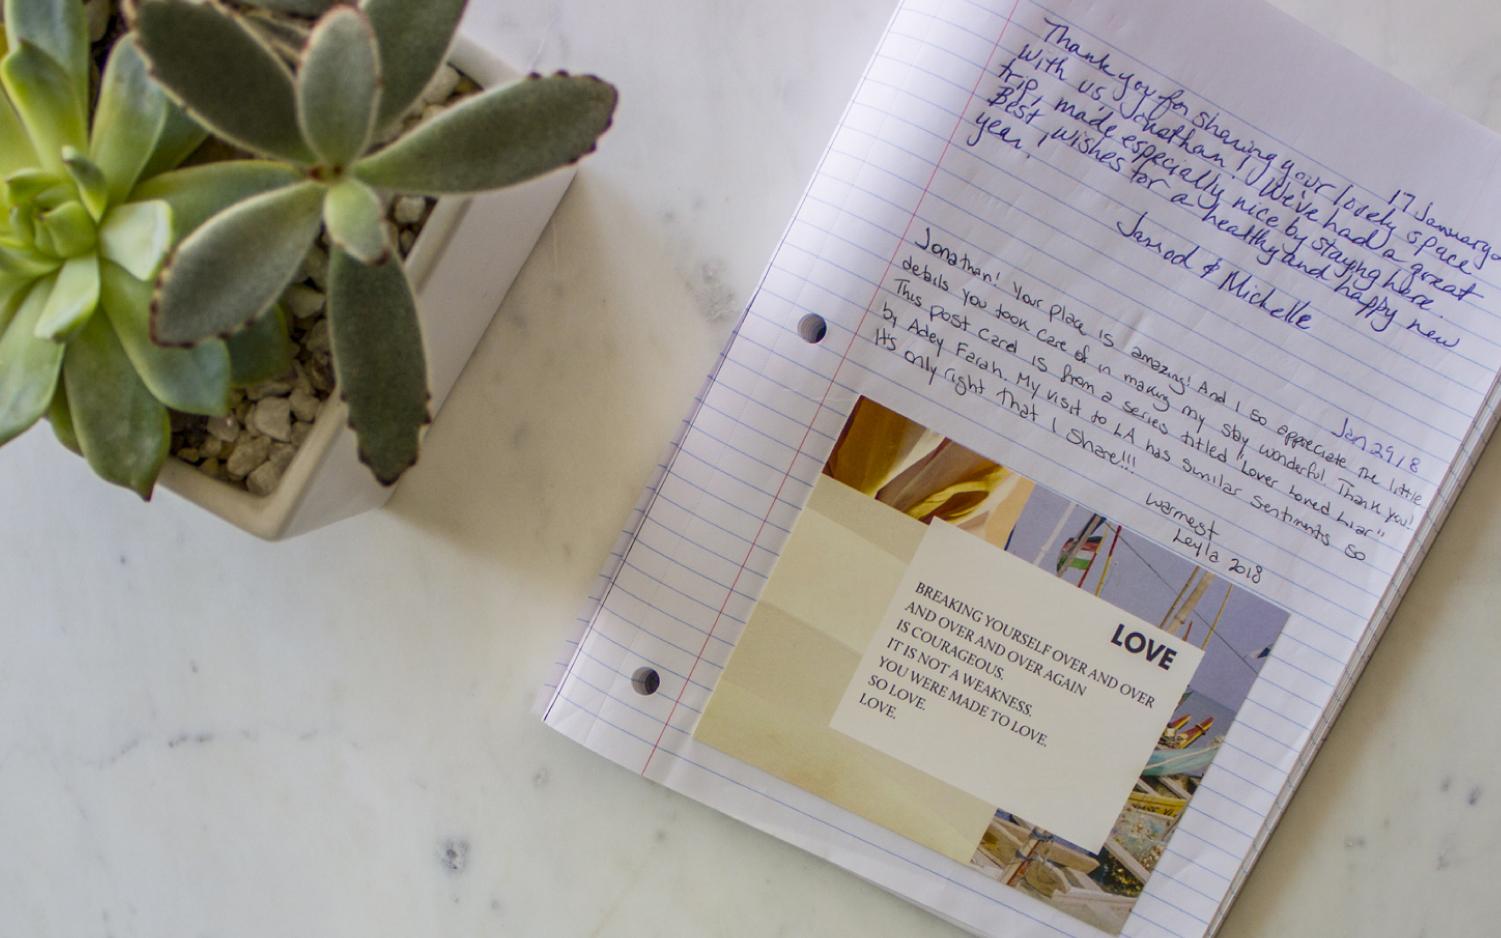 17 January
Thank you for sharing your lovely space
with us, Jonathan! We've had a great
trip, made especially nice by staying here.
Best wishes for a healthy and happy new
year.
Jarrod & Michelle
Jan 29, 18
Jonathan! Your place is amazing! And I so appreciate the little
details you took care of in making my stay wonderful! Thank you!
This post card is from a series titled "Lover boned Liar"
by Adey Farah. My visit to LA has similar sentiments so
It's only right that I share!!!
warmest
Leyla 2018
LOVE
BREAKING YOURSELF OVER AND OVER
AND OVER AND OVER AGAIN
IS COURAGEOUS.
IT IS NOT A WEAKNESS.
YOU WERE MADE TO LOVE.
SO LOVE.
LOVE.